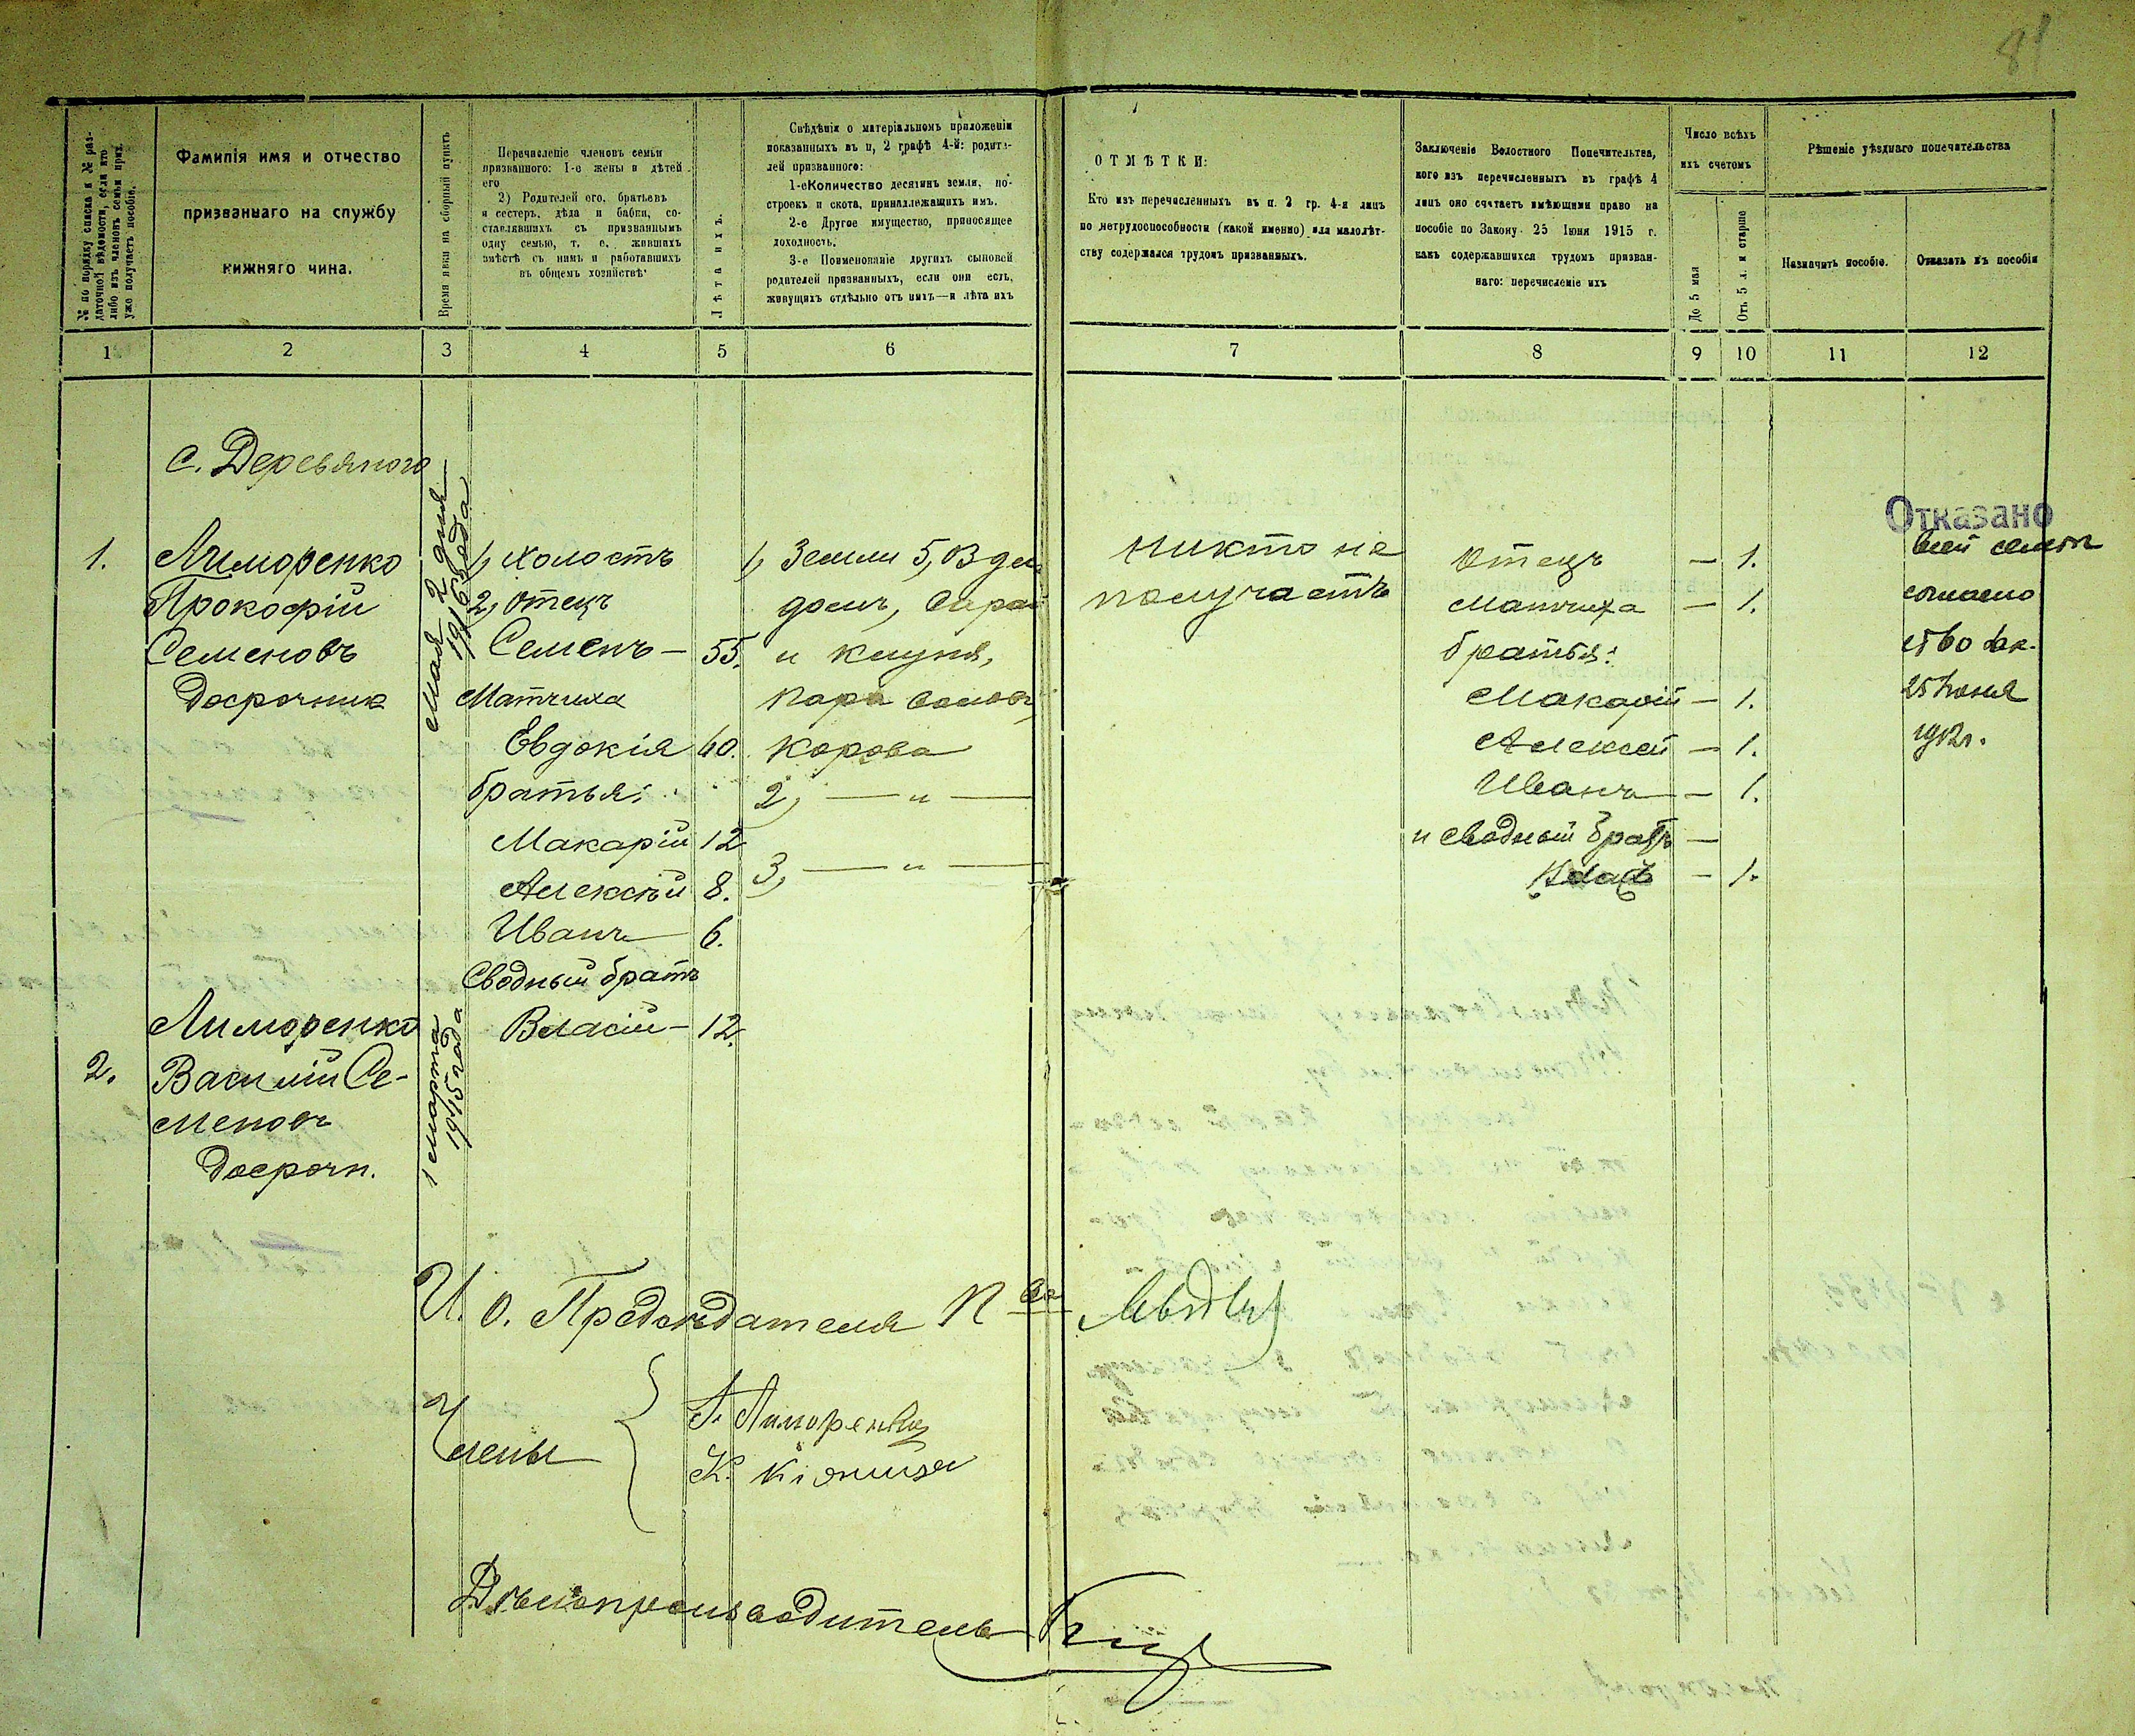 81
№ по порядку списка и № раз-
даточной вѣдомости, если кто
либо изъ членовъ семьи приз.
уже получаетъ пособіе.
Фамилія имя и отчество
призваннаго на службу
нижняго чина.
Время явки на сборный пунктъ
Перечисленіе членовъ семьи
призваннаго: 1-е жены и дѣтей
его
2) Родителей его, братьевъ
и сестеръ, дѣда и бабки, со-
ставлявшихъ съ призваннымъ
одну семью, т. е. жившихъ
вмѣстѣ съ нимъ и работавшихъ
въ общемъ хозяйствѣ
Лѣта ихъ.
Свѣдѣнія о матеріальномъ приложеніи
показанныхъ въ п, 2 графѣ 4-й: родите-
лей призваннаго:
1-е Количество десятинъ земли, по-
строекъ и скота, принадлежащихъ имъ.
2-е Другое имущество, приносящее
доходность.
3-е Поименованіе другихъ сыновей
родителей призванныхъ, если они есть,
живущихъ отдѣльно отъ нихъ—и лѣта ихъ
ОТМѢТКИ:
Кто изъ перечисленныхъ въ п. 2 гр. 4-я лицъ
по нетрудоспособности (какой именно) или малолѣт-
ству содержался трудомъ призванныхъ.
Заключеніе Волостного Попечительтва,
кого изъ перечисленныхъ въ графѣ 4
лицъ оно считаетъ имѣющими право на
пособіе по Закону 25 Іюня 1915 г.
какъ содержавшихся трудомъ призван-
наго: перечислеміе ихъ
Число всѣхъ
ихъ счетомъ
До 5 мая
Отъ 5 л. и старше
Рѣшеніе уѣзднаго попечительства
Назначить пособіе.
Отказать въ пособіи
1 2 3 4 5 6 7 8 9 10 11 12
с. Деревяного
1.
Лиморенко
Прокофій
Семеновъ
досрочник
Мая 2 дня
1916 года
1, холостъ
2, отецъ
Семенъ — 55.
Матчиха
Евдокія 60.
братья:
Макарій 12
Алексѣй 8.
Иванъ 6.
Сводный братъ
Власій — 12.
1, Земли 5, В дес
домъ, Сарай
и клуня,
пара воловъ,
корова
2, — " —
3, — " —
никто не
получаетъ
Отецъ — 1.
Матчиха — 1.
братья:
Макарій — 1.
Алексей — 1.
Иванъ — 1.
и сводный братъ —
— 1.
Отказано
всей семьи
согласно
25 Іюня
1912г.
2.
Лиморенко
Василій Се-
меновъ
досрочн.
1 марта
1915 года
И. О. Предсѣдателя П-ва
Члены
Г. Лиморенко
К.
Дѣлопроизводитель